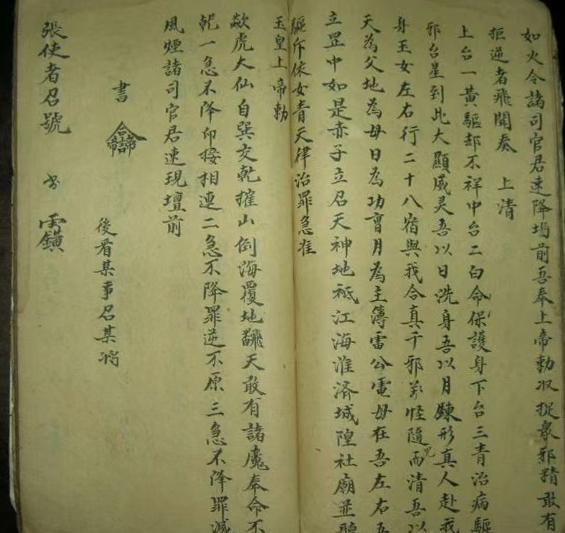 如火令諸司官君速降塲前吾奉上帝勅收捉衆邪精敢有
拒逆者飛聞奏 上清
上台一黃驅却不祥中台二白令保護身下台三青治病驅
邪台星到此大顯威灵吾以日洗身吾以月鍊形真人赴我
身玉女左右行二十八宿與我合真千邪萬怪隨而清吾以
天為父地為母日為功曹月為主簿雷公電母在吾左右吾
立罡中如是赤子立召天神地祗江海淮济城隍社廟並聽
驅斥俟女青天律治罪急准
玉皇上帝勅
欻虎大仙自巽交乾摧山倒海覆地飜天敢有諸魔奉命不
乾一急不降印接相連二急不降罪逆不原三急不降罪滅
風煙諸司官君速現壇前
書
後看某事召某将
張使者召號